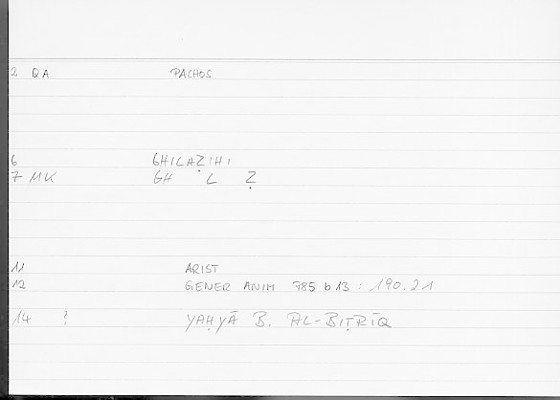 2 QA PACHOS
6 GHILAẒIHI
7 MK GH L Ẓ
11 ARIST
12 GENER ANIM 785 b 13 : 190.21
14 ? YAḤYĀ B. AL-BIṬRĪQ